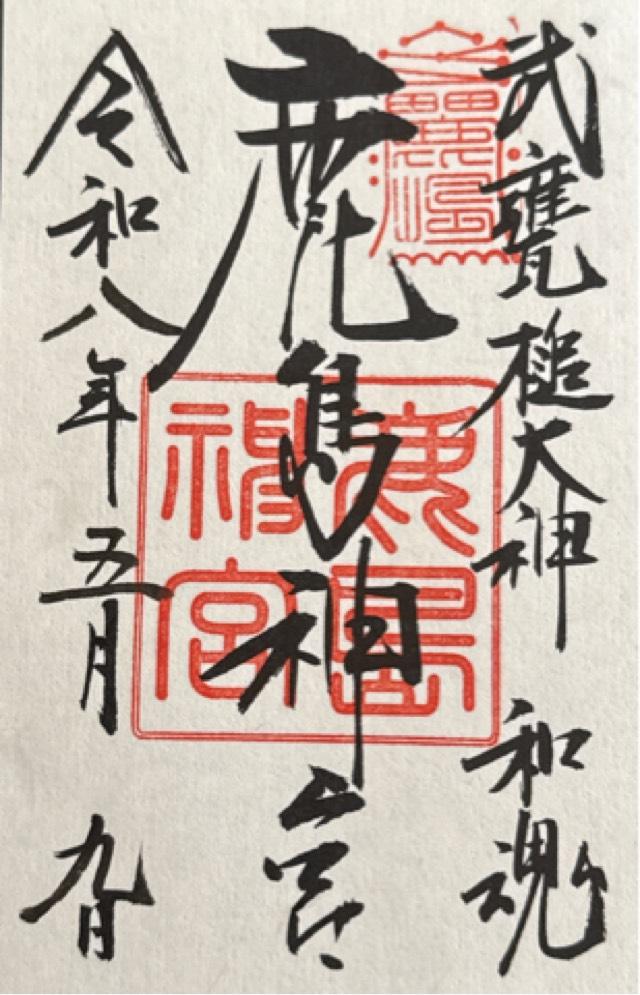 武甕槌大神 和魂
鹿島神宮
令和八年五月 九日
鹿島
神宮